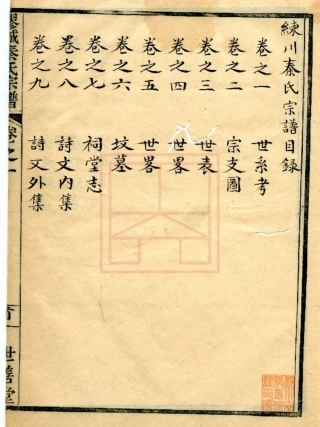 練川秦氏宗譜目錄
卷之一 世系考
卷之二 宗支圖
卷之三 世表
卷之四 世畧
卷之五 世畧
卷之六 坟墓
卷之七 祠堂志
卷之八 詩文内集
卷之九 詩文外集
秦氏宗譜
世善堂